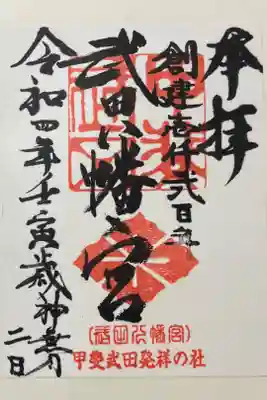 奉拝
創建壱仟弐百年
武田八幡宮
令和四年壬寅歳神無月二日
(武田八幡宮)
甲斐武田発祥の社